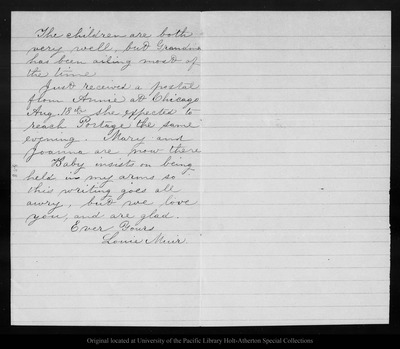 The children are both
very well, but Grandma
has been ailing most of
the time.
Just received a postal
from Annie at Chicago
Aug. 18th she expected to
reach Portage the same
evening. Mary and
Joanna are now there
Baby insists on being
held in my arms so
this writing goes all
awry, but we love
you, and are glad.
Ever Yours
Louie Muir.
Original located at University of the Pacific Library Holt-Atherton Special Collections